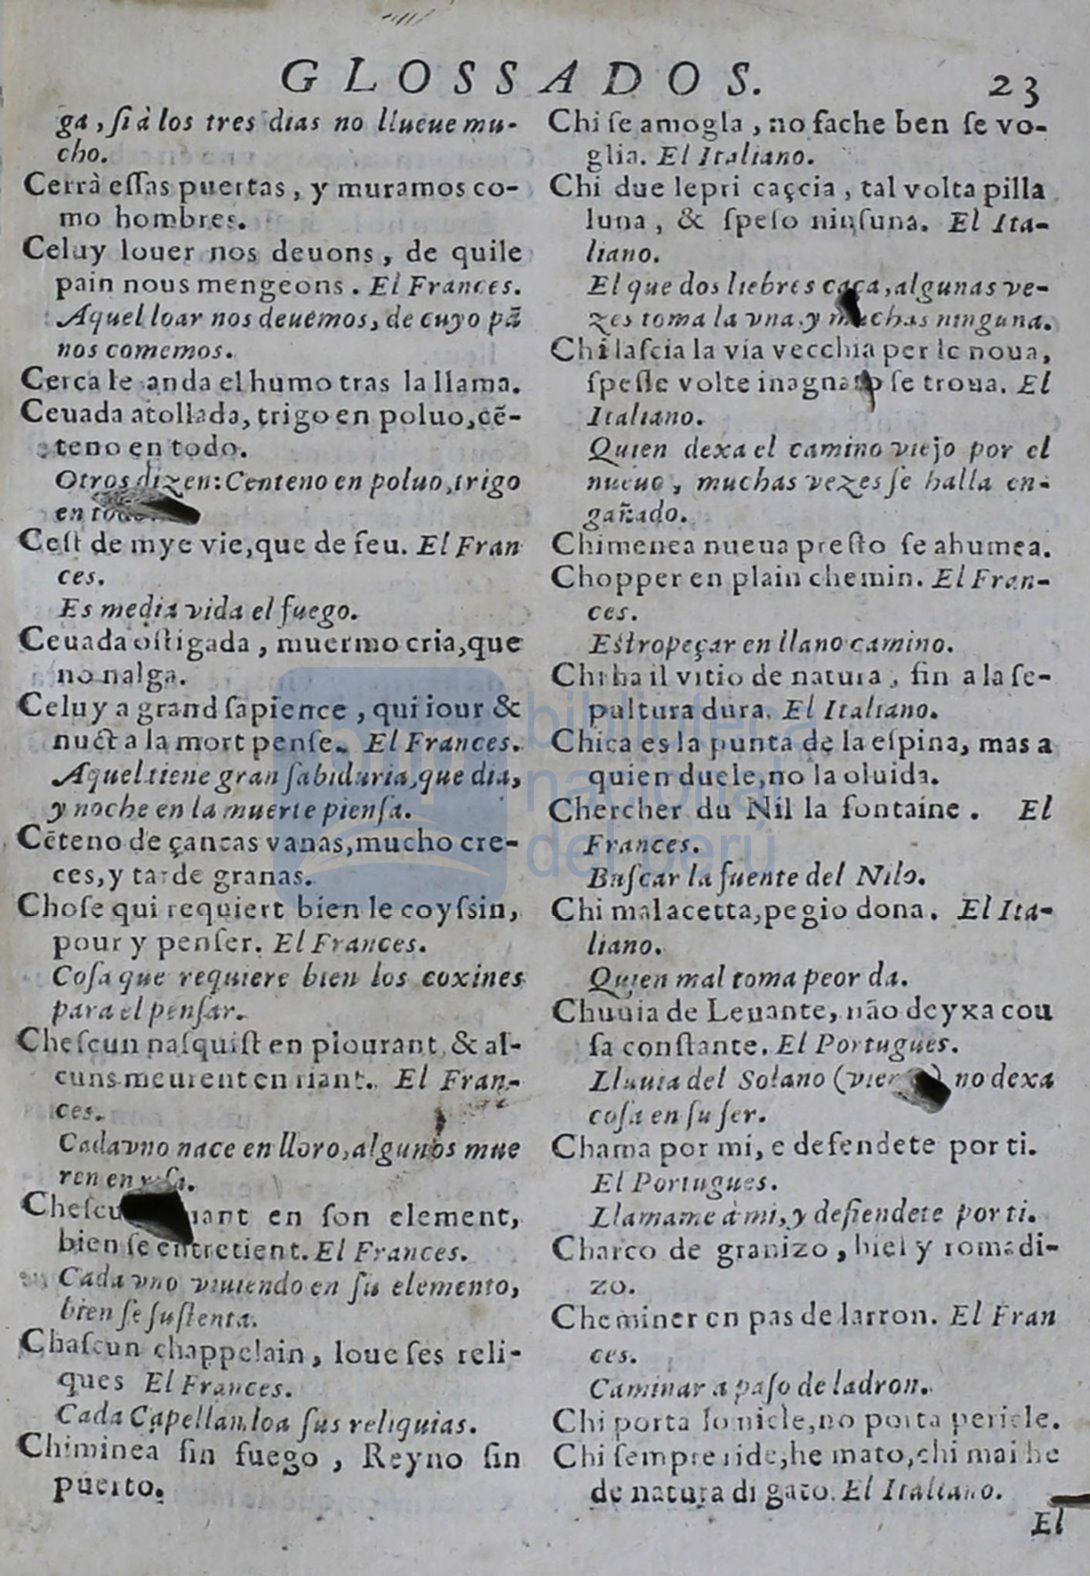 GLOSSADOS. 23
ga, ſi à los tres dias no llueue mu-
cho.
Cerrà eſſas puertas, y muramos co-
mo hombres.
Celuy louer nos deuons, de quile
pain nous mengeons. El Frances.
Aquel loar nos deuemos, de cuyo pã
nos comemos.
Cerca le anda el humo tras la llama.
Ceuada atollada, trigo en poluo, cẽ-
teno en todo.
Otros dizen: Centeno en poluo, trigo
en todo.
Ceſt de mye vie, que de feu. El Fran
ces.
Es media vida el fuego.
Ceuada oſtigada, muermo cria, que
no nalga.
Celuy a grand ſapience, qui iour &
nuct a la mort penſe. El Frances.
Aquel tiene gran ſabiduria, que dia,
y noche en la muerte pienſa.
Cẽteno de çancas vanas, mucho cre-
ces, y tarde granas.
Choſe qui requiert bien le coyſsin,
pour y penſer. El Frances.
Coſa que requiere bien los coxines
para el penſar.
Cheſcun naſquiſt en plourant, & al-
cuns meurent en riant. El Fran-
ces.
Cada vno nace en lloro, algunos mue
ren en riſa.
Cheſcu en ſon element,
bien ſe entretient. El Frances.
Cada vno viuiendo en ſu elemento,
bien ſe ſuſtenta.
Chaſcun chappelain, loue ſes reli-
ques El Frances.
Cada Capellan loa ſus reliquias.
Chiminea ſin fuego, Reyno ſin
puerto.
Chi ſe amogla, no fache ben ſe vo-
glia. El Italiano.
Chi due lepri caçcia, tal volta pilla
luna, & ſpeſo ninſuna. El Ita-
liano.
El que dos liebres caça, algunas ve-
zes toma la vna, y muchas ninguna.
Chi laſcia la via vecchia per le noua,
ſpeſſe volte ſe troua. El
Italiano.
Quien dexa el camino viejo por el
nueuo, muchas vezes ſe halla en-
gañado.
Chimenea nueua preſto ſe ahumea.
Chopper en plain chemin. El Fran-
ces.
Eſtropeçar en llano camino.
Chi ha il vitio de natura, fin a la ſe-
pultura dura. El Italiano.
Chica es la punta de la eſpina, mas a
quien duele, no la oluida.
Chercher du Nil la fontaine. El
Frances.
Buſcar la fuente del Nilo.
Chi mal acetta, pegio dona. El Ita-
liano.
Quien mal toma peor da.
Chuuia de Leuante, não deyxa cou
ſa conſtante. El Portugues.
Lluuia del Solano no dexa
coſa en ſu ſer.
Chama por mi, e defendete por ti.
El Portugues.
Llamame à mi, y defiendete por ti.
Charco de granizo, hiel y romadi-
zo.
Cheminer en pas de larron. El Fran
ces.
Caminar a paſo de ladron.
Chi porta lo nicle, no porta pericle.
Chi ſempre ride, he mato, chi mai he
de natura di gato. El Italiano.
El
biblioteca
nacional
del perú